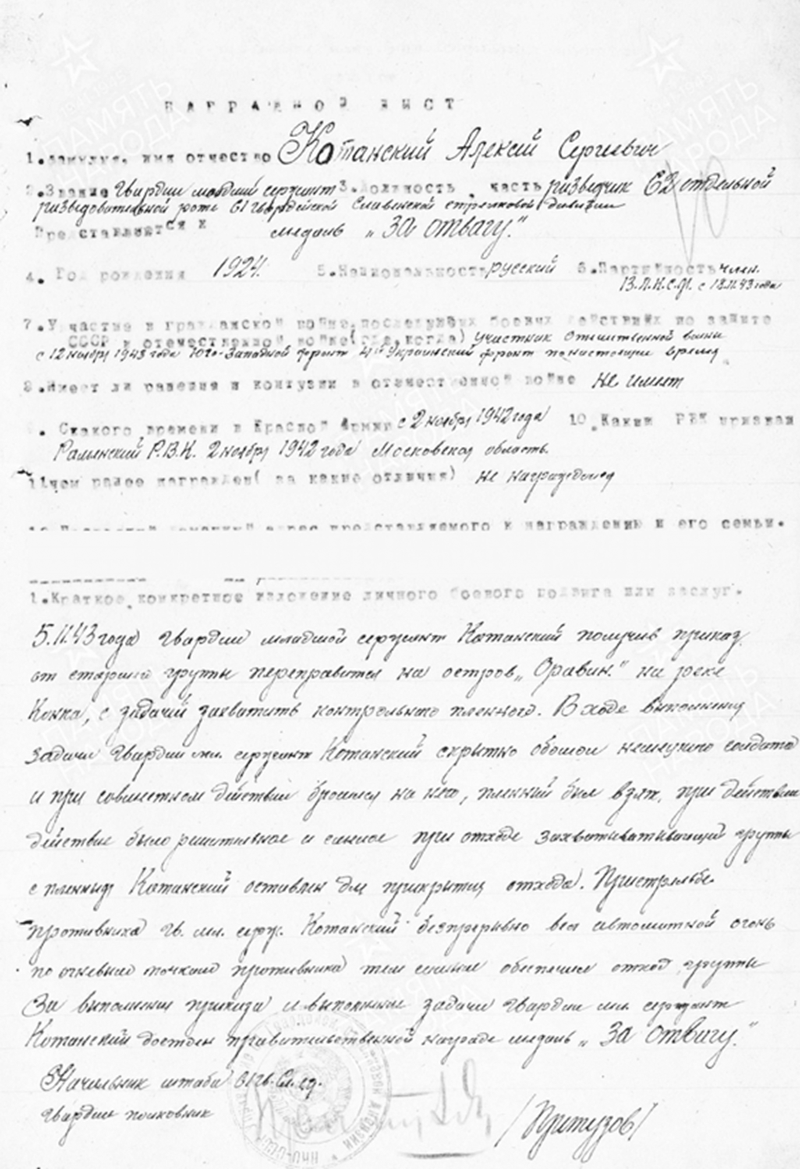 НАГРАДНОЙ ЛИСТ
1. Фамилия, имя отчество Котанский Алексей Сергеевич
2. Звание Гвардии младший сержант 3. Должность, часть разведчик 62 отдельной
разведовательной роте 61 гвардейской Славенской стрелковой дивизии
Представляется к медаль „За отвагу."
4. Год рождения 1924. 5. Национальность русский 6. Партийность член.
В.Л.К.С.М. с 43 года
7. Участие в гражданской войне, последующих боевых действиях по защите
СССР и отечественной войне (где, когда) участник Отечественной войны
с 12 ноября 1943 года Юго-Западной фронт 4й Украинский фронт по настоящие время
8. Имеет ли ранения и контузии в отечественной войне не имеет
9. С какого времени в Красной Армии с 2 ноября 1942 года 10. Каким РВК призван
Раменский Р.В.К. 2 ноября 1942 года Московская область.
11. Чем ранее награжден (за какие отличия) не награжден
адрес представляемого к награждению и его семьи.
1. Краткое, конкретное изложение личного боевого подвига или заслуг.
5.11.43 года Гвардии младшой сержант Котанский получив приказ
от старшей группы переправится на остров на реке
Конка, с задачей захватить контрольного пленного. В ходе выполнения
задачи Гвардии мл. сержант Котанский скрытно обошол немецкого солдата
и при совместном действии бросился на него, пленный был взят, при действии
действие было решительное и смелое при отходе группы
с пленным Котанский оставлен для прикрытия отхода. При стрельбе
противника гв. мл. серж. Котанский безпрерывно вел автоматной огонь
по огневым точкам противника тем самым обеспечил отход группы
За выполнения приказа и выполнение задачи Гвардии мл. сержант
Котанский достоен правительственной награде медаль „За отвагу."
Начальник штаба 61 гв. Сл. сд.
Гвардии полковник